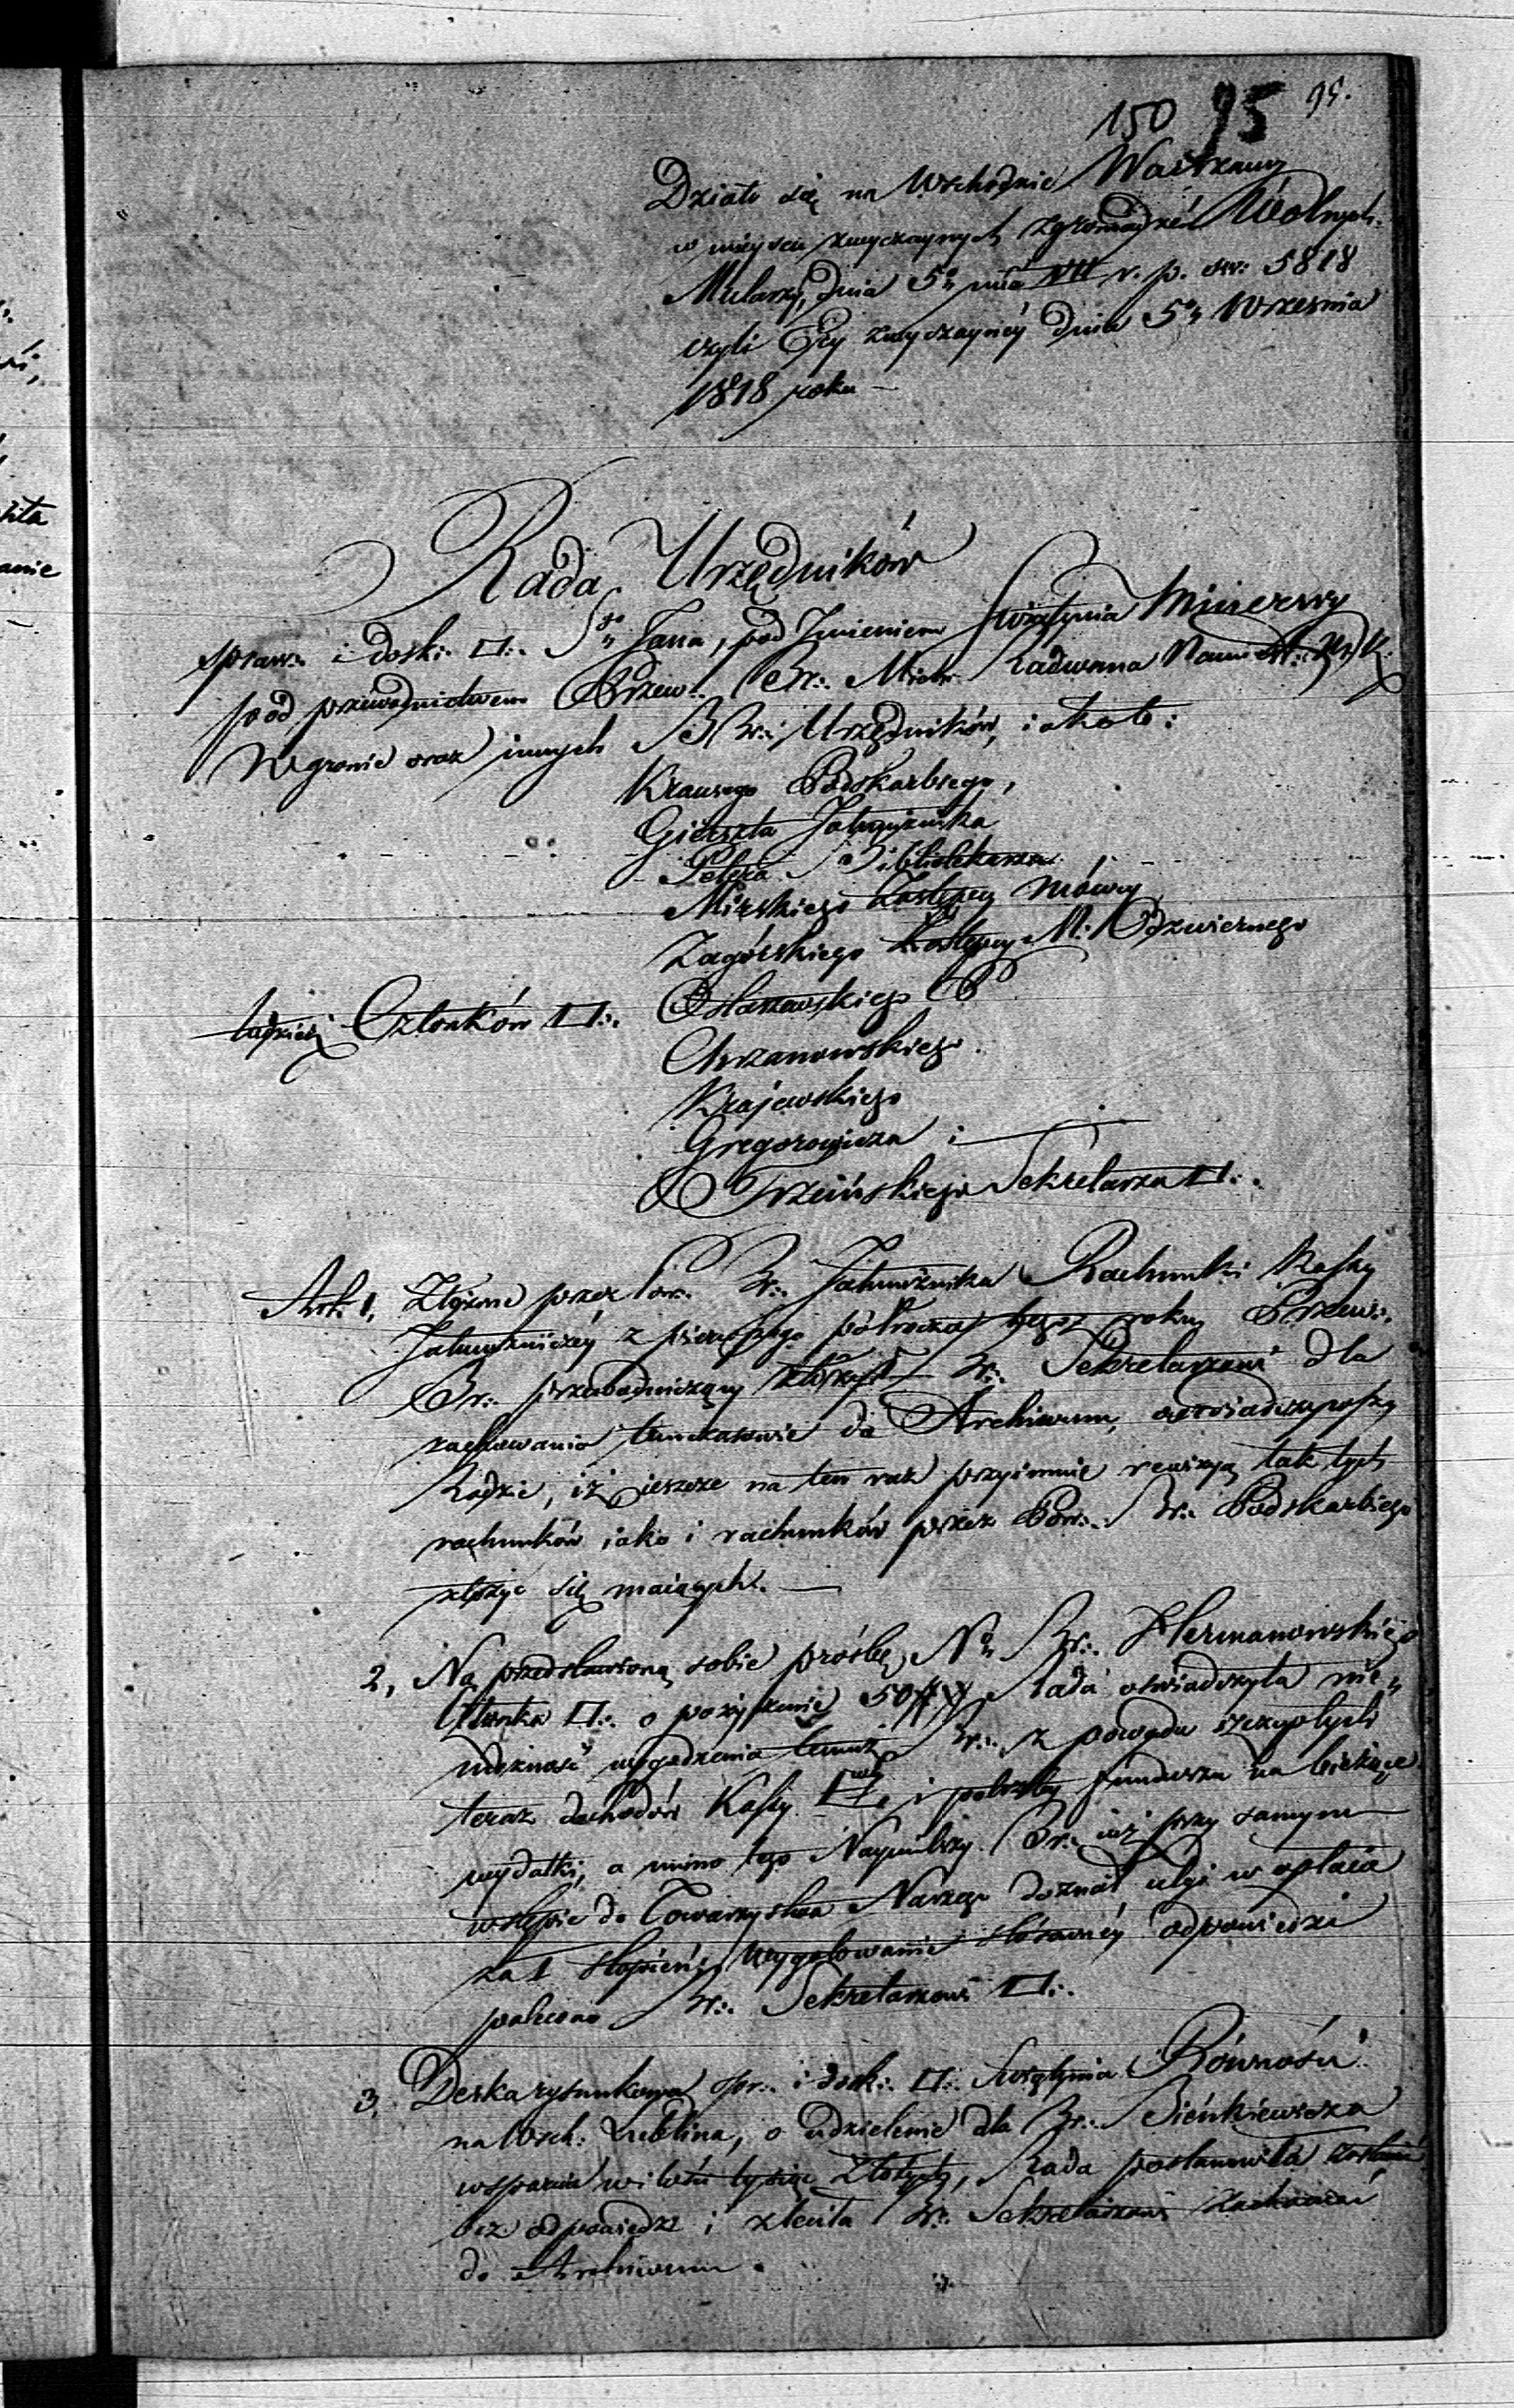 150 95 95.
Działo się na Wschodzie Warszawy
w mieyscu zwyczaynych zgromadzeń Wolnych
Mularzy, dnia 5º mca VII r. p. św: 5818
czyli Ery zwyczayney dnia 5º Wrzesnia
1818 roku —
Rada Urzędników
spraw: i dosk: □: Sgo Jana, pod Imieniem Swiątynia Minerwy
pod przewodnictwem Przew: Br: Mistr: Radwana Nam:
W gronie oraz innych BBr: Urzędników, iakoto:
Krausego Podskarbiego,
Gierszta Jałmużnika
Petza Bibliotekarza
Mirskiego Zastępcy Mówcy
Zagórskiego Zastępcy M: Odzwiernego
tudzież Członków □:. Ostaszewskiego P
Chrzanowskiego.
Krajewskiego
Gregorowicza i —
Trzcińskiego Sekretarza □:.
Art: 1. Złożone przez Br: Jałmużnika Rachunki Kassy
Jałmużniczéy z pierwszego półrocza tegoż roku, Przew:
Br: przewodniczący złożył Br: Sekretarzowi dla
zachowania tymczasowie do Archiwum, oświadczywszy
Radzie, iż ieszcze na ten raz przyimuie rewizyą tak tych
rachunków iako i rachunków przez Pow: Br: Podskarbiego
złożyć się maiących. —
2, Na przedstawioną sobie prośbę N° Br: Hermanowskiego
Członka □:. o pożyczenie 50 ## Rada oświadczyła nie„
możność wygodzenia temuż Br: z powodu szczupłych
teraz dochodów Kassy □wéy i potrzeby funduszu na bieżące
wydatki, a mimo tego Naymilszy Br: iuż przy samym
wstępie do Towarzystwa Naszego doznał ulgi w opłacie
za I stopień; Wygotowanie stósownéy odpowiedzi
polecono Br: Sekretarzowi □:.
3, Deska rysunkowa spr: i dosk: □: Swiątynia Równości
na Wsch: Lublina, o udzielenie dla Br: Sieńkiewicza
wsparcia w ilości tysiąc Złotych, Rada postanowiła zostawić
bez odpowiedzi i zleciła Br: Sekretarzowi zachować
do Archiwum.